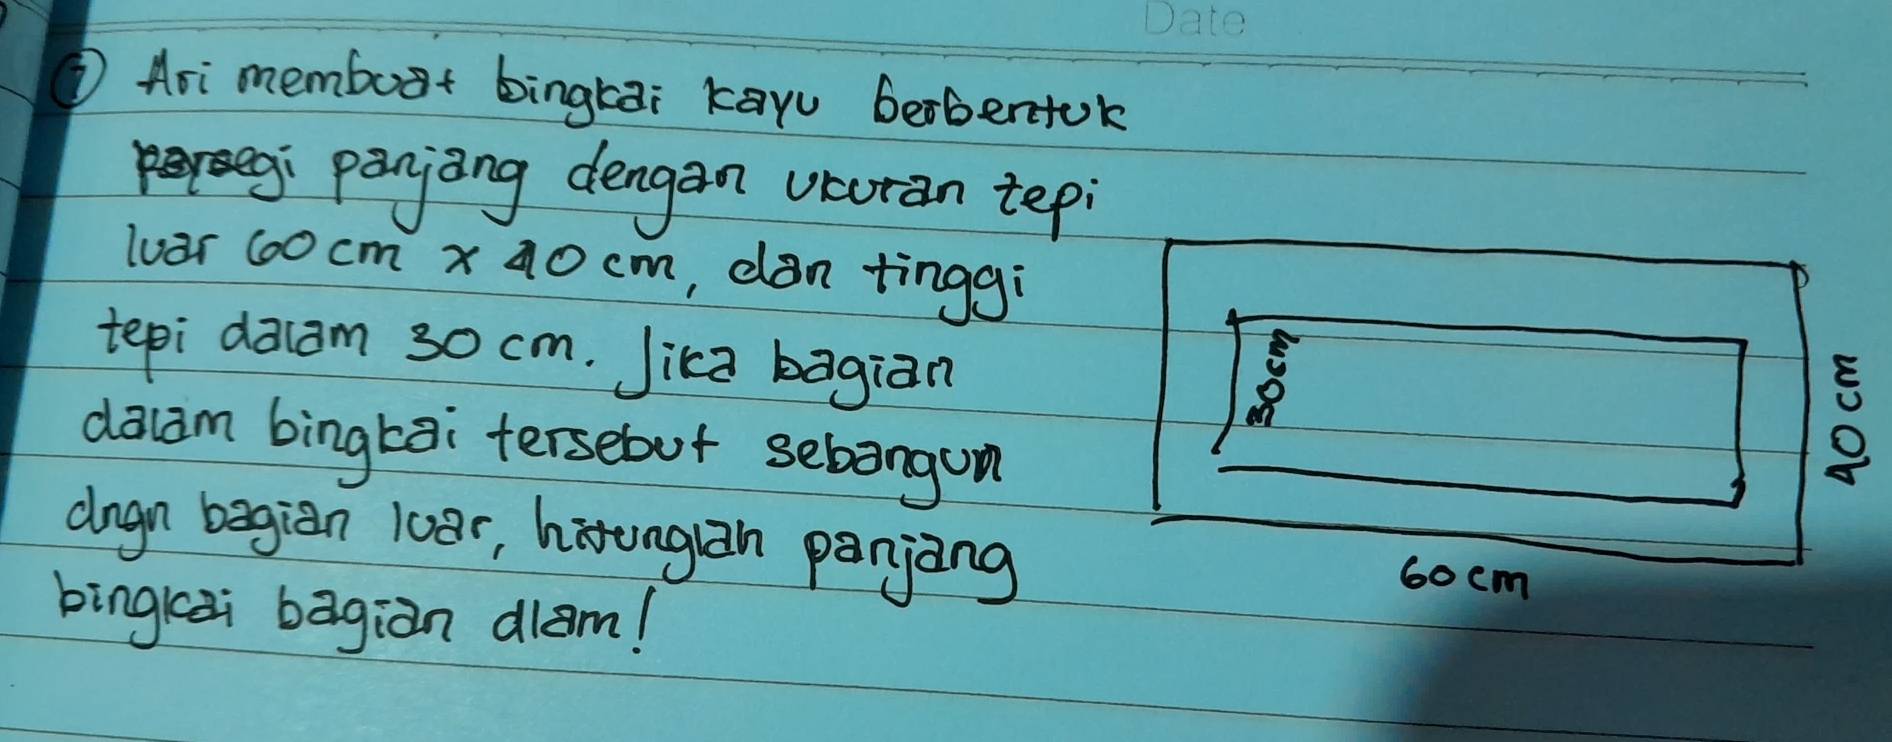 Date
7 Ari membuat bingkai kayu berbentuk
persegi panjang dengan ukuran tepi
luar 60 cm x 40 cm, dan tinggi
tepi dalam 30 cm. Jika bagian
dalam bingkai tersebut sebangun
dngn bagian luar, hitunglah panjang
bingkai bagian dlam!
30cm
40cm
60cm